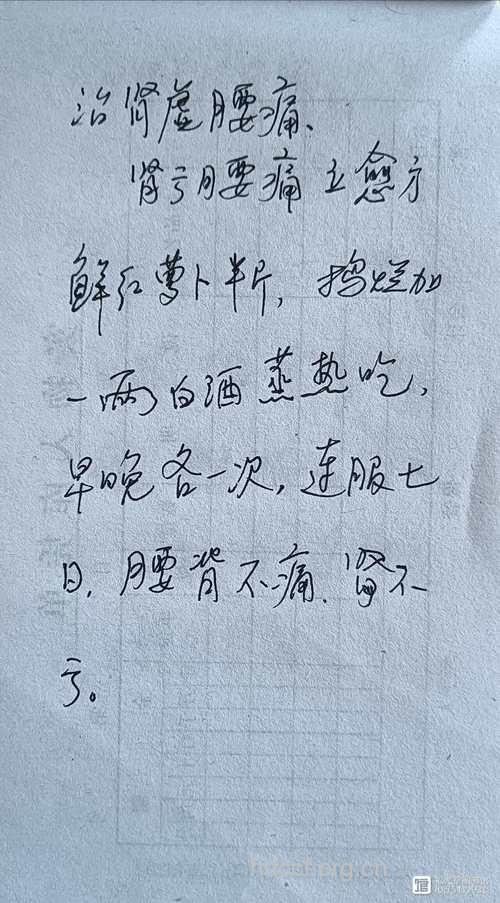 治肾虚腰痛、
肾亏腰痛立愈方
鲜红萝卜半斤，捣烂加
一两白酒蒸热吃，
早晚各一次，连服七
日，腰背不痛、肾不
亏。